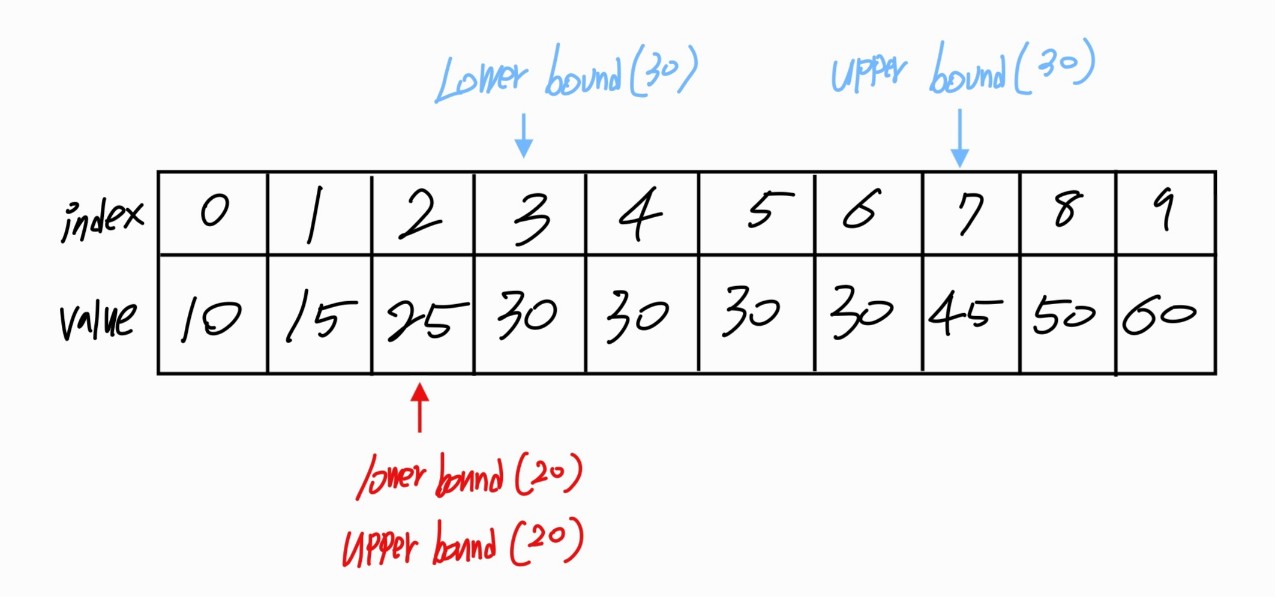 Lower bound(30) upper bound(30)
index 0 1 2 3 4 5 6 7 8 9
value 10 15 25 30 30 30 30 45 50 60
lower bound(20)
upper bound(20)